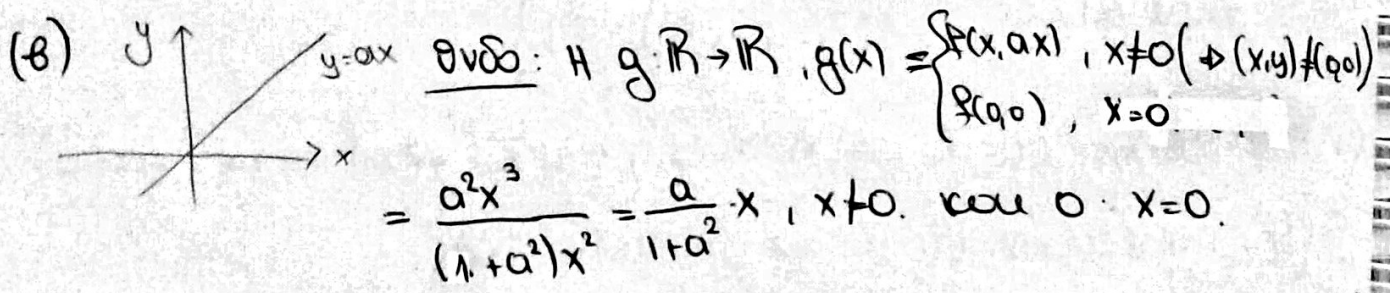 (β) y y=αx θνδο: Η g:ℝ→ℝ, g(x) = { f(x,αx), x≠0 (⇒ (x,y)≠(0,0))
x f(0,0), x=0
= α²x³/((1+α²)x²) = α/(1+α²)·x, x≠0. και 0· x=0.